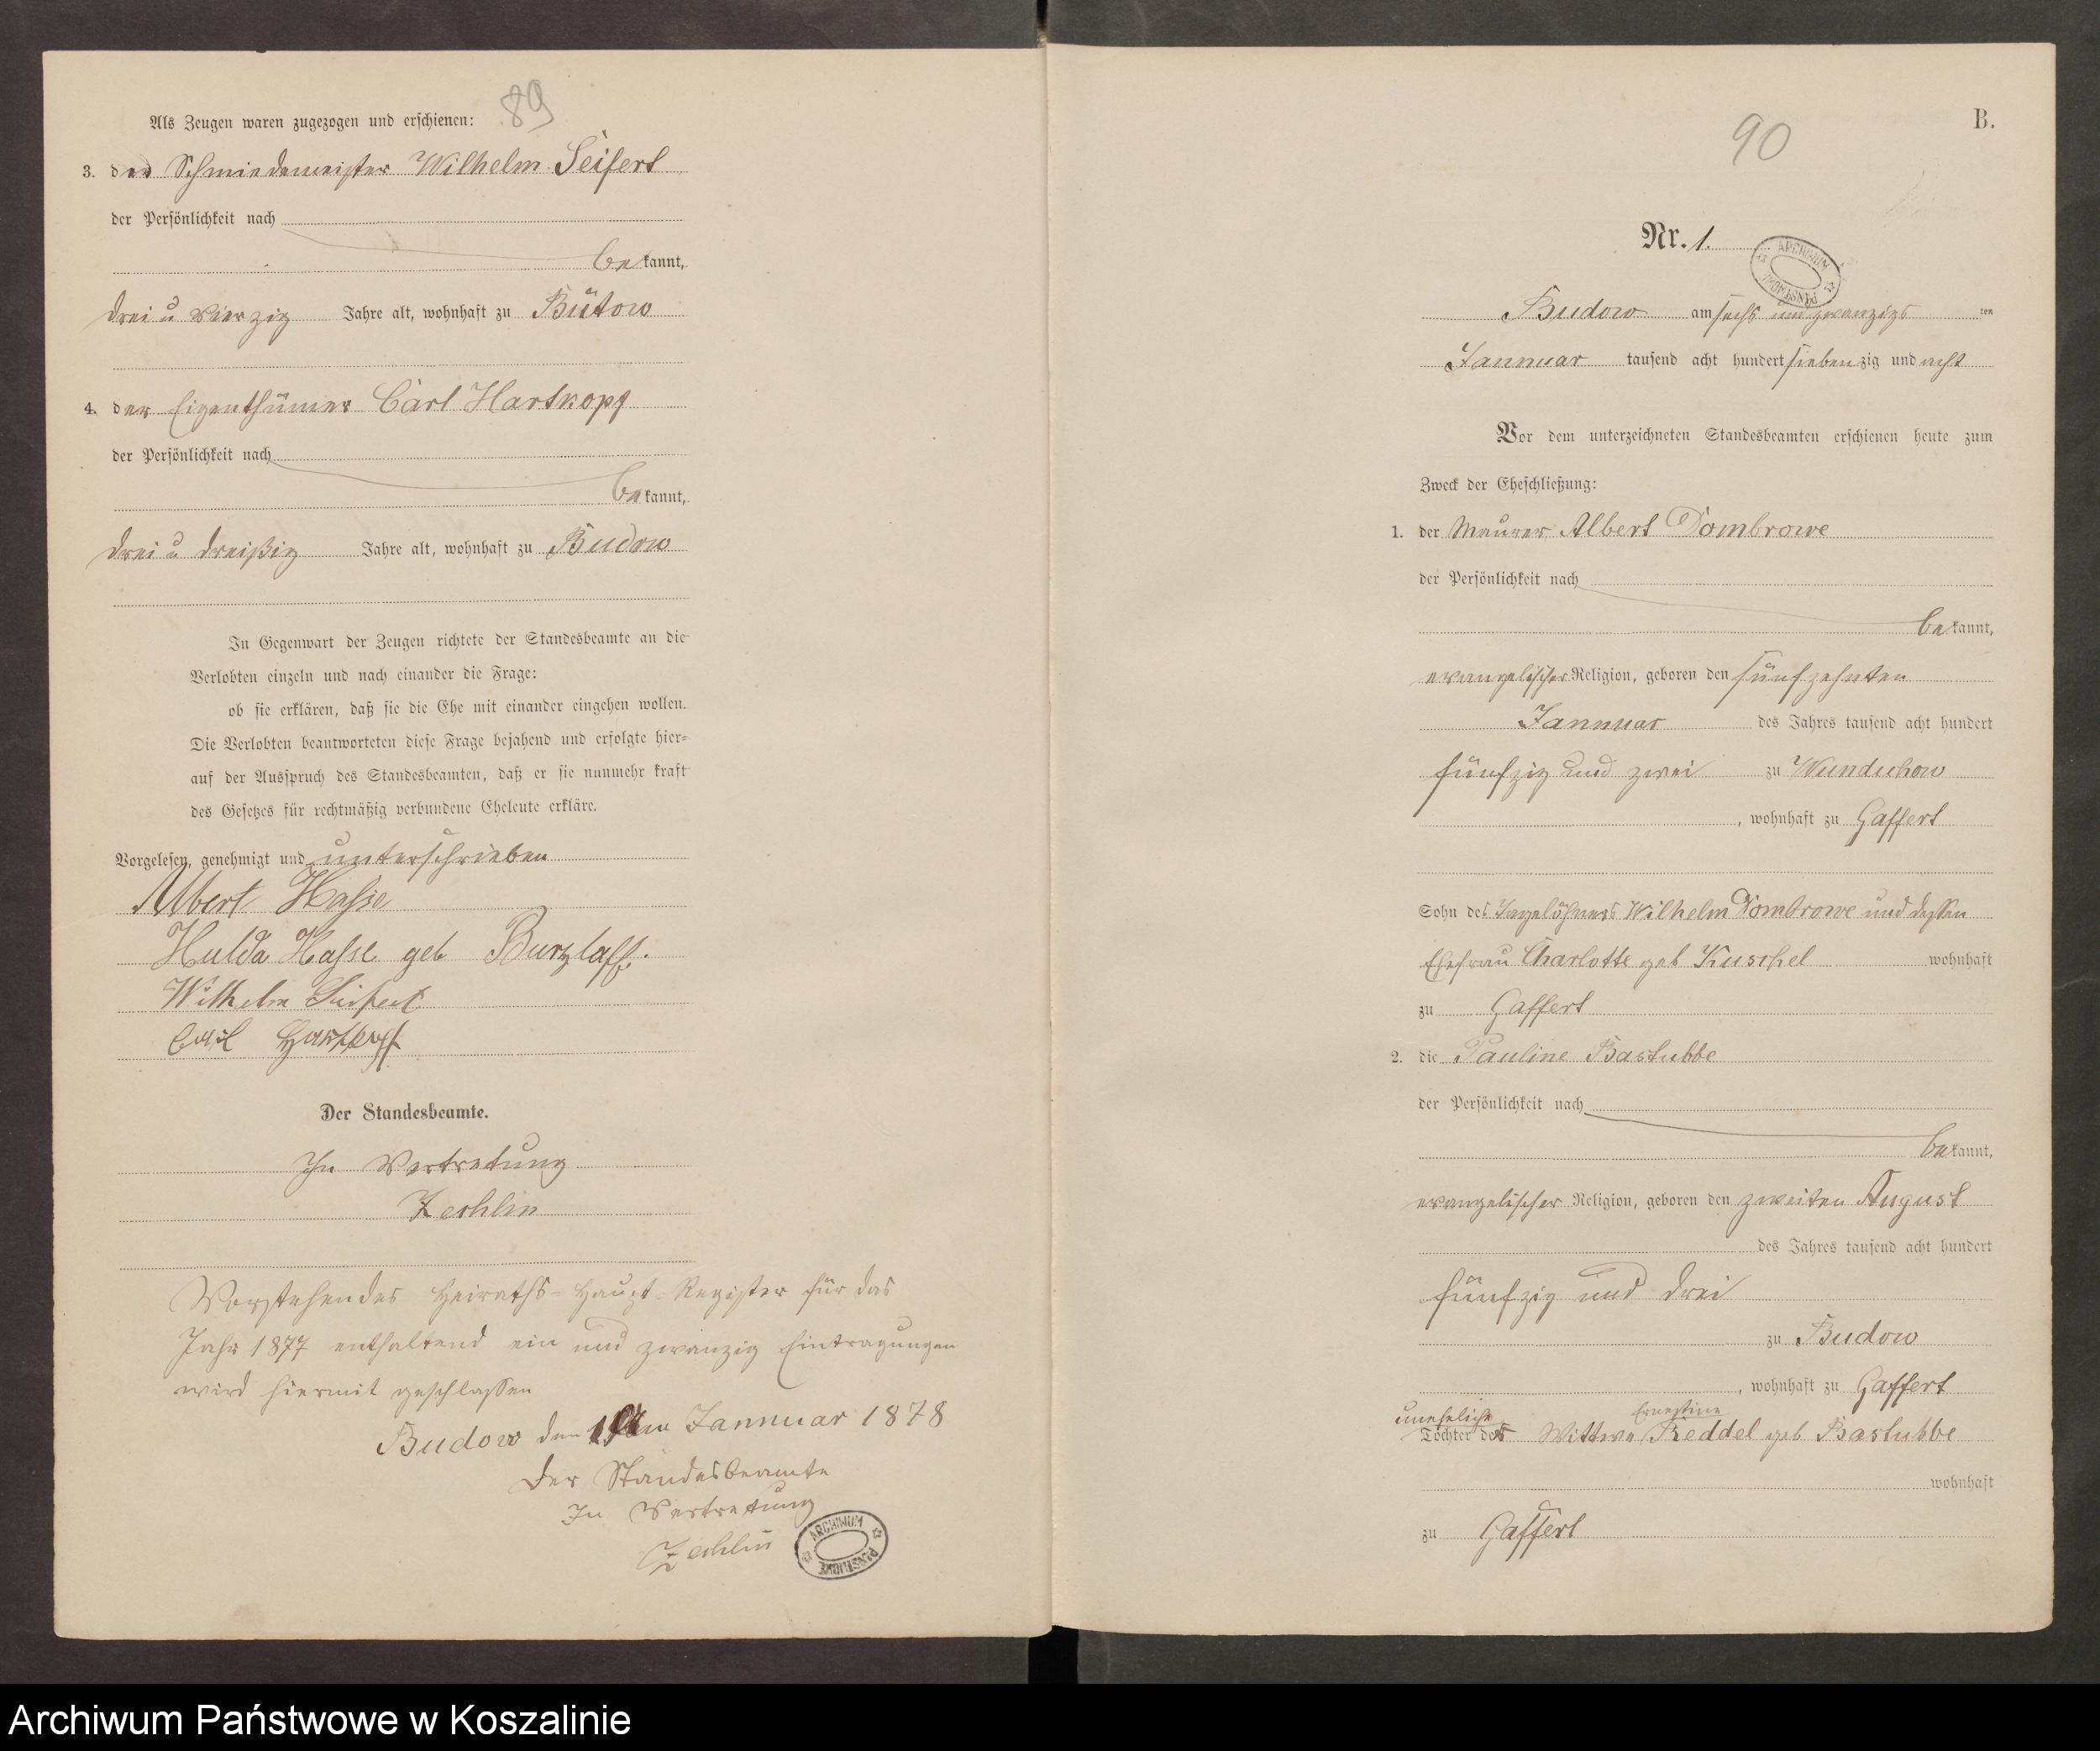 89
Als Zeugen waren zugezogen und erschienen:
3. der Schmiedemeister Wilhelm Seifert
der Persönlichkeit nach
bekannt,
drei u vierzig Jahre alt, wohnhaft zu Bütow
4. der Eigenthümer Carl Hartkopf
der Persönlichkeit nach
bekannt,
drei u dreißig Jahre alt, wohnhaft zu Budow
In Gegenwart der Zeugen richtete der Standesbeamte an die
Verlobten einzeln und nach einander die Frage:
ob sie erklären, daß sie die Ehe mit einander eingehen wollen.
Die Verlobten beantworteten diese Frage bejahend und erfolgte hier-
auf der Ausspruch des Standesbeamten, daß er sie nunmehr kraft
des Gesetzes für rechtmäßig verbundene Eheleute erkläre.
Vorgelesen, genehmigt und unterschrieben
Albert Hasse
Hulda Hasse geb Burzlaff.
Wilhelm Seifert
Carl Hartkopf
Der Standesbeamte.
In Vertretung
Zechlin
Vorstehendes Heiraths-Haupt-Register für das
Jahr 1877 enthaltend ein und zwanzig Eintragungen
wird hiermit geschlossen
Budow den Jannuar 1878
Der Standesbeamte
In Vertretung
Zechlin
ARCHIWUM PAŃSTWOWE
90
B.
Nr. 1.
ARCHIWUM PAŃSTWOWE
Budow am sechs und zwanzigs ten
Jannuar tausend acht hundert siebenzig und acht
Vor dem unterzeichneten Standesbeamten erschienen heute zum
Zweck der Eheschließung:
1. der Maurer Albert Dombrowe
der Persönlichkeit nach
bekannt,
evangelischer Religion, geboren den fünfzehnten
Jannuar des Jahres tausend acht hundert
fünfzig und zwei zu Wunduchow
, wohnhaft zu Gaffert
Sohn des Tagelöhners Wilhelm Dombrowe und dessen
Ehefrau Charlotte geb Kuschel wohnhaft
zu Gaffert
2. die Pauline Bastubbe
der Persönlichkeit nach
bekannt,
evangelischer Religion, geboren den zweiten August
des Jahres tausend acht hundert
fünfzig und drei
zu Budow
, wohnhaft zu Gaffert
uneheliche Ernestine
Tochter der Wittwe Reddel geb Bastubbe
wohnhaft
zu Gaffert
Archiwum Państwowe w Koszalinie